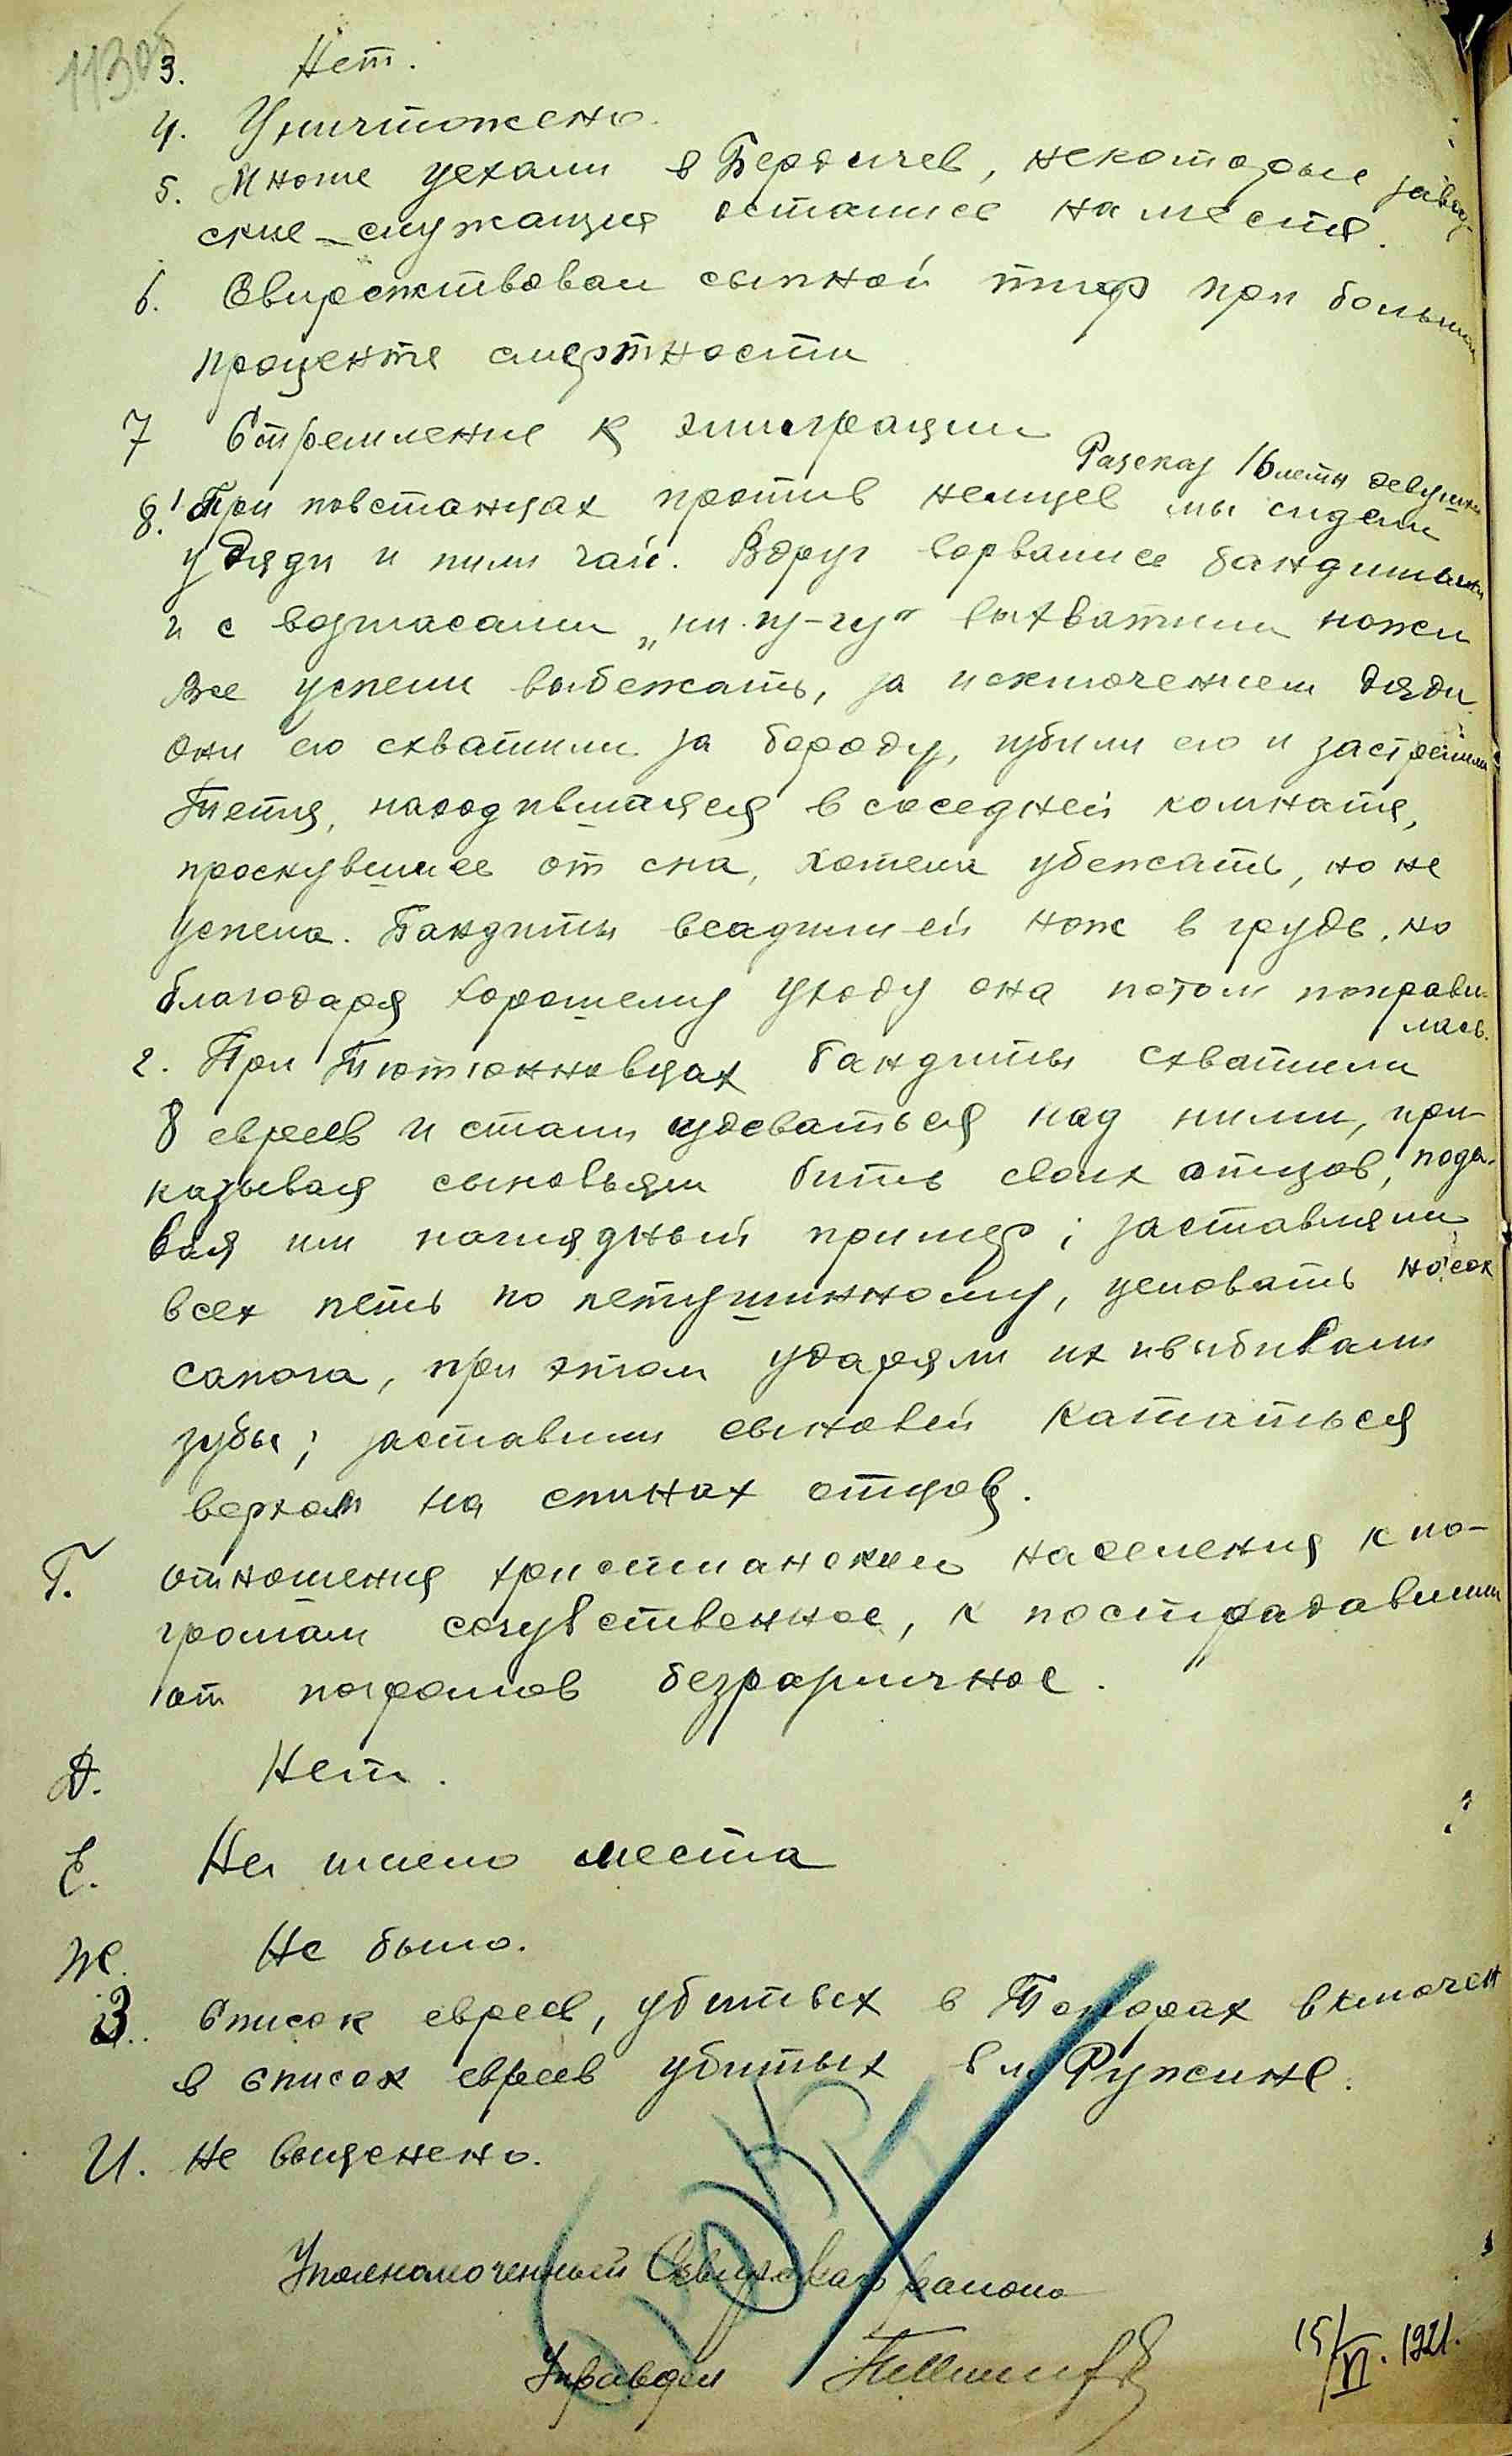 113об
3. Нет.
4. Уничтожено.
5. Многие уехали в Бердичев, некоторые завод-
ские служащия остались на месте.
6. Свирепствовал сыпной тиф при большом
проценте смертности
7 Стремление к эмиграции
Разсказ 16 летн девушки
8. 1 При повстанцах против немцев мы сидели
у дяди и пили чай. Вдруг ворвались бандиты
и с возгласами „ ги-гу-гу" выхватили ножи
Все успели выбежать, за исключением дяди
Они его схватили за бороду, избили его и застрелили
Тетя, находившаяся в соседней комнате,
проснувшись от сна, хотела убежать, но не
успела. Бандиты всадили ей нож в грудь, но
благодаря хорошему уходу она потом поправи-
лась.
2. При Тютюнновцах бандиты схватили
8 евреев и стали издеваться над ними, при-
казывая сыновьям бить своих отцов, пода-
вая им наглядный пример; заставляли
всех петь по петушинному, целовать носок
сапога, при этом ударяли их и выбивали
зубы; заставили сыновей кататься
верхом на спинах отцов.
Г. Отношения христианского населения к по-
громам сочувственное, к пострадавшим
от погромов безразличное.
Д. Нет.
Е. Не имело места
Ж. Не было.
З. Список евреев, убитых в Топорах включен
в список евреев убитых в м. Ружине.
И. Не выяснено.
Уполномоченный Сквирского района
Управдел
15/VI. 1921.